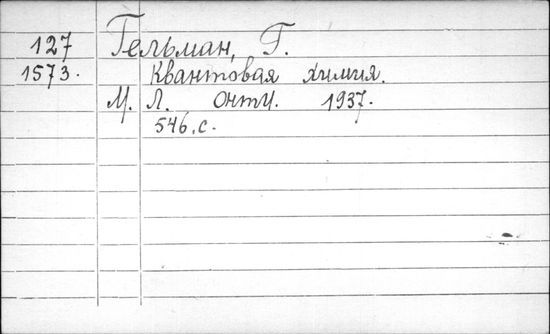 127 Гельман, Г.
1573. Квантовая химия.
М. Л. ОНТИ. 1937.
546.с.